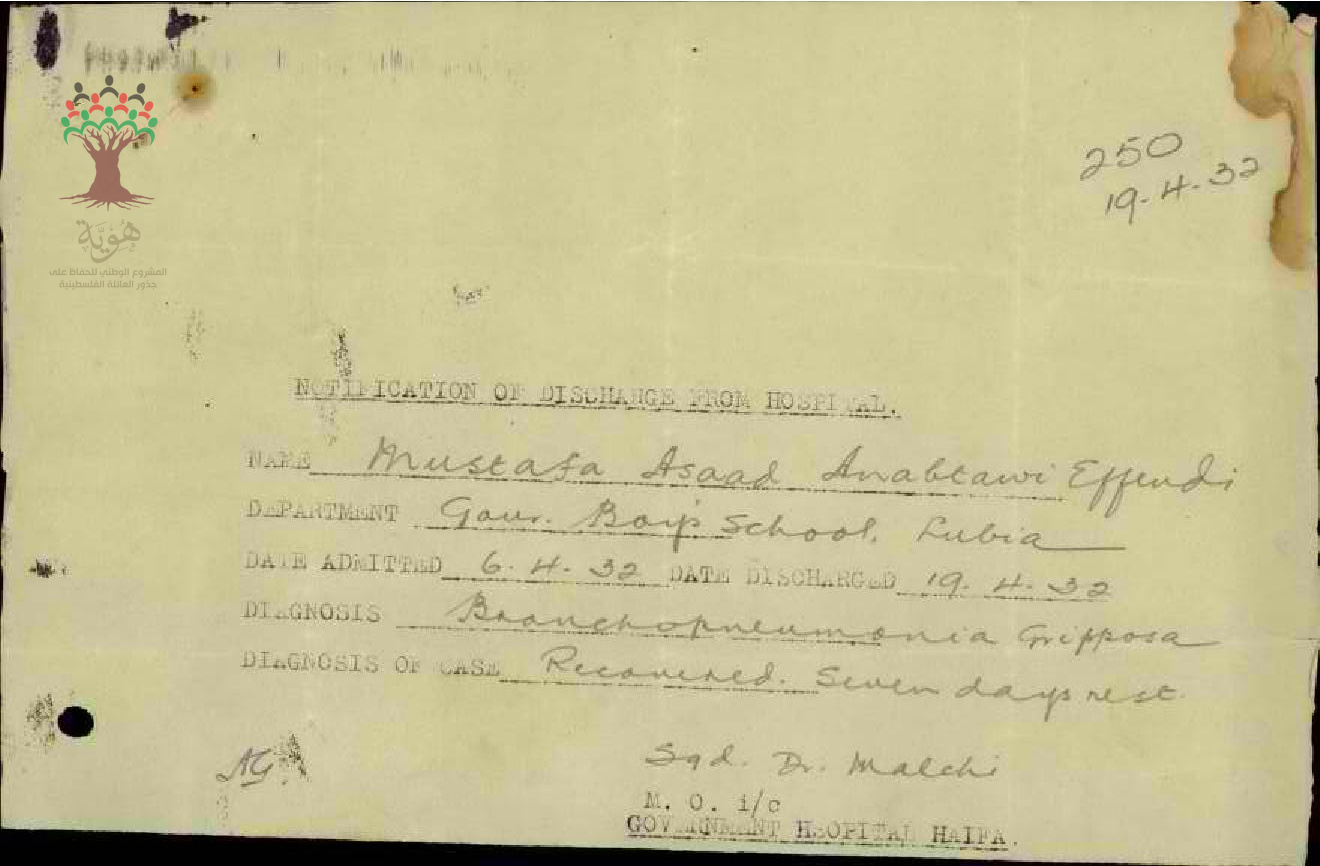 هُوِيَّة
المشروع الوطني للحفاظ على
جذور العائلة الفلسطينية
250
19-4-32
NOTIFICATION OF DISCHANGE FROM HOSPITAL.
NAME Mustafa Asaad Anabtawi Effendi
DEPARTMENT Gour. Boys School. Lubia
DATE ADMITTED 6.4.32 DATE DISCHARGED 19.4.32
DIAGNOSIS Bronchopneumonia Gripposa
DIAGNOSIS OF CASE Recovered. Seven days rest.
AG.
Sgd. Dr. Malchi
M. O. i/c
GOVERNMENT HSOPITAL HAIFA.